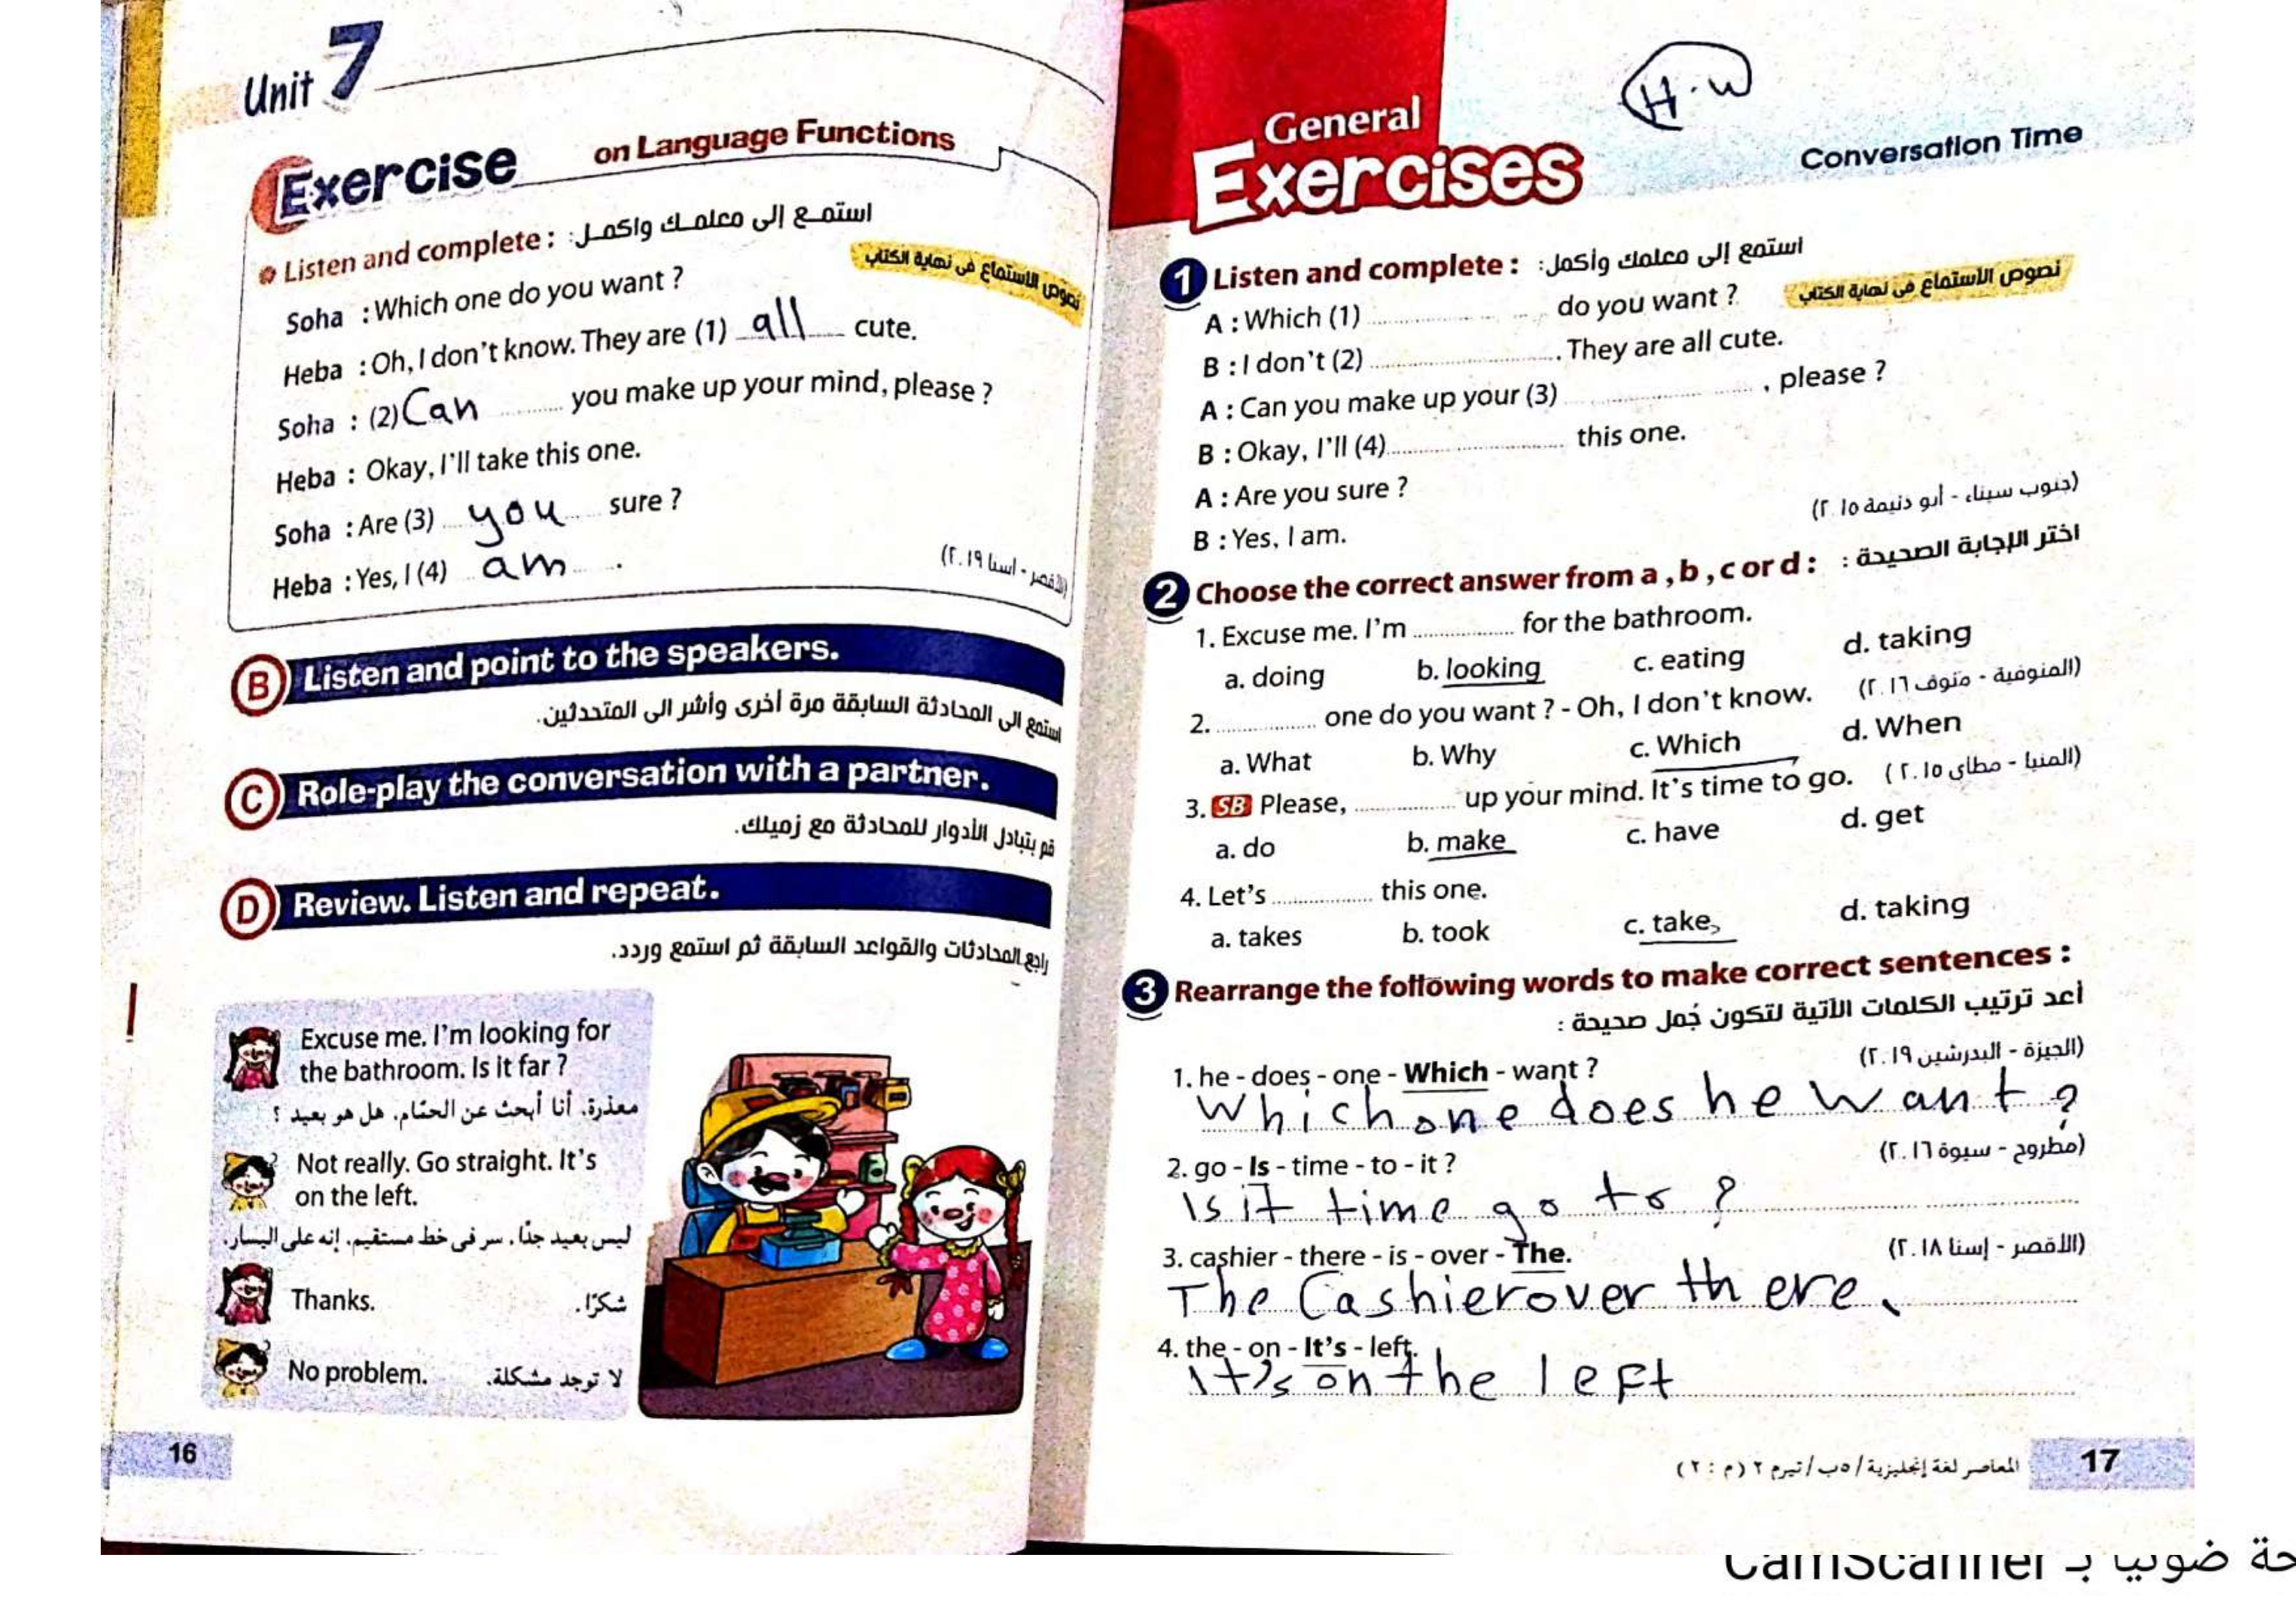 Unit 7
Exercise on Language Functions
Listen and complete : استمع إلى معلمك واكمل :
نصوص الاستماع فى نهاية الكتاب
Soha : Which one do you want ?
Heba : Oh, I don't know. They are (1) all cute.
Soha : (2) Can you make up your mind, please ?
Heba : Okay, I'll take this one.
Soha : Are (3) you sure ?
Heba : Yes, I (4) am .
(الأقصر - اسنا ٢٠١٩)
B Listen and point to the speakers.
استمع الى المحادثة السابقة مرة أخرى وأشر الى المتحدثين.
C Role-play the conversation with a partner.
قم بتبادل الأدوار للمحادثة مع زميلك.
D Review. Listen and repeat.
راجع المحادثات والقواعد السابقة ثم استمع وردد.
Excuse me. I'm looking for
the bathroom. Is it far ?
معذرة. أنا أبحث عن الحمّام. هل هو بعيد ؟
Not really. Go straight. It's
on the left.
ليس بعيد جدًا. سر فى خط مستقيم. إنه على اليسار.
Thanks. شكرًا.
No problem. لا توجد مشكلة.
16
H.w
General
Exercises
Conversation Time
1 Listen and complete : استمع إلى معلمك وأكمل :
نصوص الاستماع فى نهاية الكتاب
A : Which (1) .......... do you want ?
B : I don't (2) .......... . They are all cute.
A : Can you make up your (3) .......... , please ?
B : Okay, I'll (4) .......... this one.
A : Are you sure ?
B : Yes, I am.
(جنوب سيناء - أبو دنيمة ٢٠١٥)
2 Choose the correct answer from a , b , c or d : اختر الإجابة الصحيحة :
1. Excuse me. I'm .......... for the bathroom.
a. doing b. looking c. eating d. taking
(المنوفية - منوف ٢٠١٦)
2. .......... one do you want ? - Oh, I don't know.
a. What b. Why c. Which d. When
(المنيا - مطاى ٢٠١٥)
3. SB Please, .......... up your mind. It's time to go.
a. do b. make c. have d. get
4. Let's .......... this one.
a. takes b. took c. take d. taking
3 Rearrange the following words to make correct sentences :
أعد ترتيب الكلمات الآتية لتكون جُمل صحيحة :
1. he - does - one - Which - want ? (الجيزة - البدرشين ٢٠١٩)
Which one does he want ?
2. go - Is - time - to - it ? (مطروح - سيوة ٢٠١٦)
Is it time go to ?
3. cashier - there - is - over - The. (الأقصر - إسنا ٢٠١٨)
The Cashier over there.
4. the - on - It's - left.
It's on the left
المعاصر لغة إنجليزية / ٥ب / تيرم ٢ (م : ٢)
17
ضوئيا بـ CamScanner